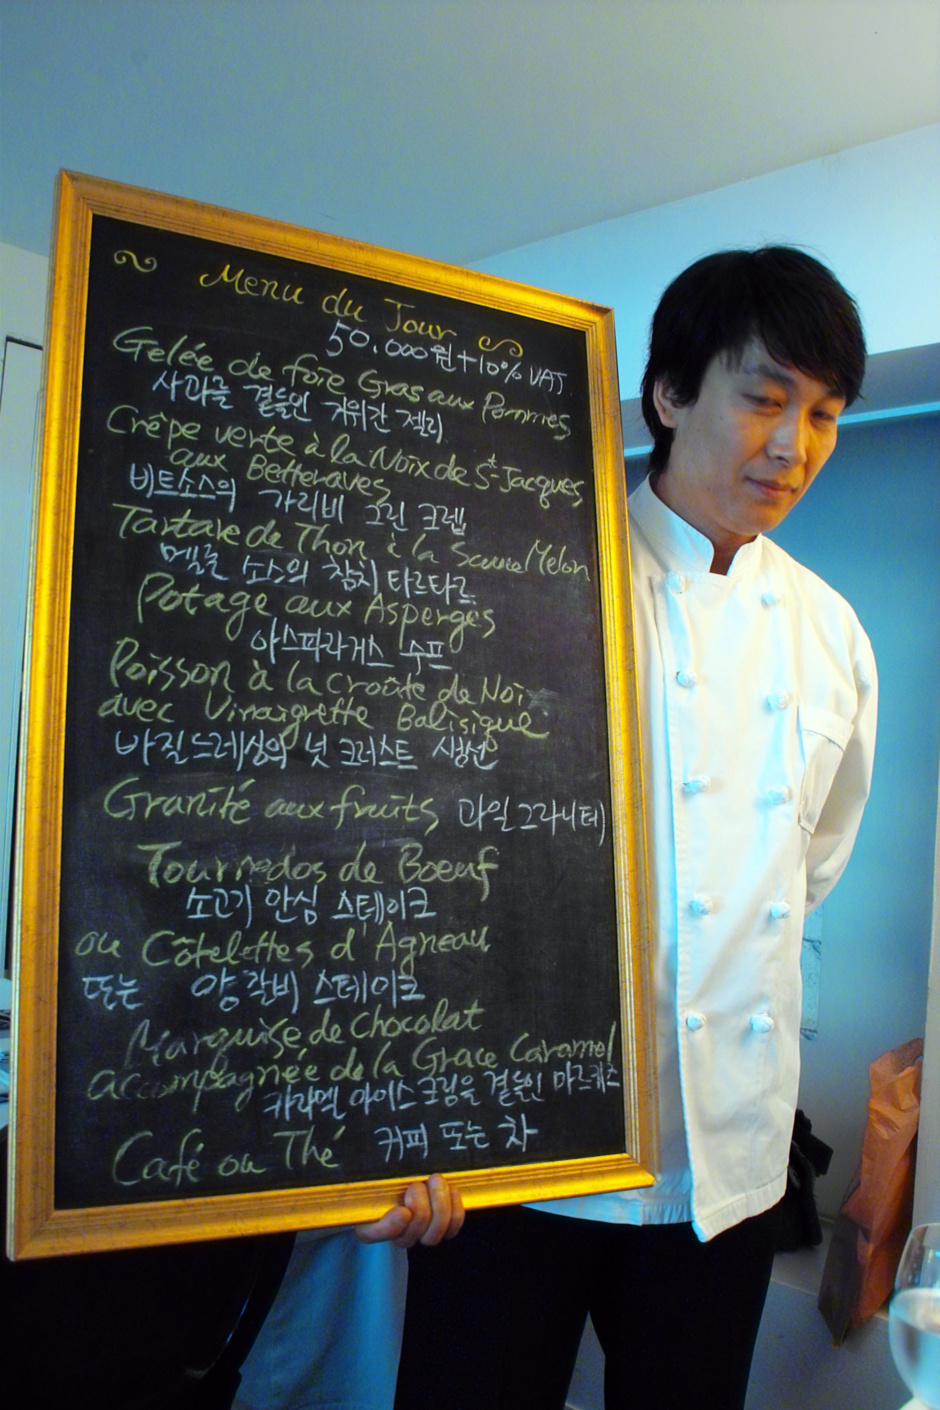 Menu du Jour
50.000원+10% VAT
Gelée de foie Gras aux Pommes
사과를 곁들인 거위간 젤리
Crêpe verte à la Noix de St-Jacques
aux Betteraves
비트소스의 가리비 그린 크렙
Tartare de Thon à la Sauce Melon
멜론 소스의 참치 타르타르
Potage aux Asperges
아스파라거스 수프
Poisson à la croûte de Noi
avec Vinaigrette Balisique
바질드레싱의 넛 크러스트 생선
Granité aux fruits 과일그라니테
Tournedos de Boeuf
소고기 안심 스테이크
ou Côtelettes d'Agneau
또는 양갈비 스테이크
Marquise de Chocolat
accompagnée de la Grace Caramel
카라멜 아이스크림을 곁들인 마르키즈
Café ou Thé 커피 또는 차